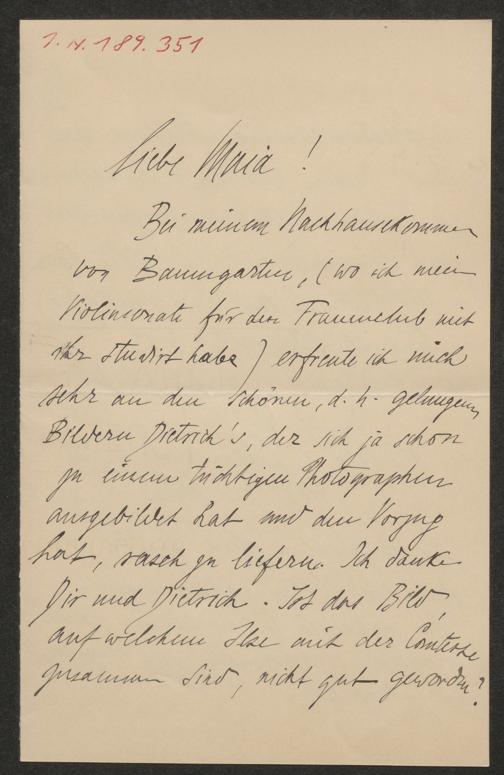 I. N. 189.351
Liebe Maia!
Bei meinem Nachhausekommen
von Baumgarten, (wo ich mein
Violinsonate für den Frauenclub mit
ihr studirt habe) erfreute ich mich
sehr an den schönen, d. h. gelungenen
Bildern Dietrich's, der sich ja schon
zu einem tüchtigen Photographen
ausgebildet hat und den Vorzug
hat, rasch zu liefern. Ich danke
Dir und Dietrich. Ist das Bild,
auf welchem Ilse mit der Comtesse
zusammen sind, nicht gut geworden?